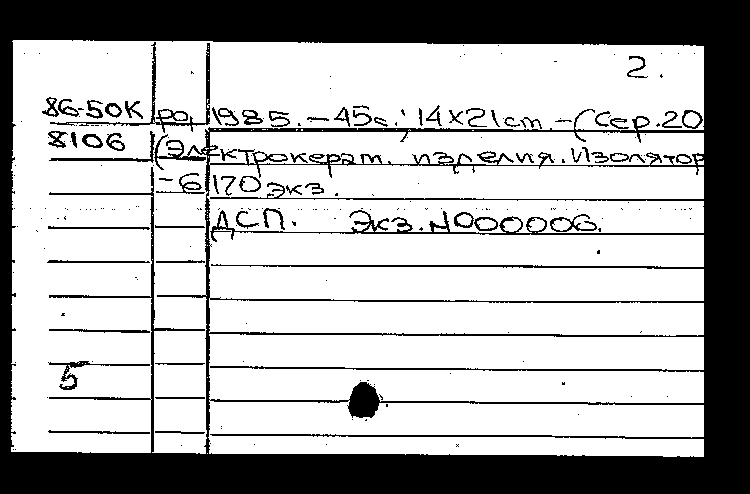 2.
86-50К ро, 1985. – 45с.; 14х21cm. – (Сер.20
8106 (Электрокерам. изделия. Изолятор
– 6 170 экз.
ДСП. Экз. N000006.
5